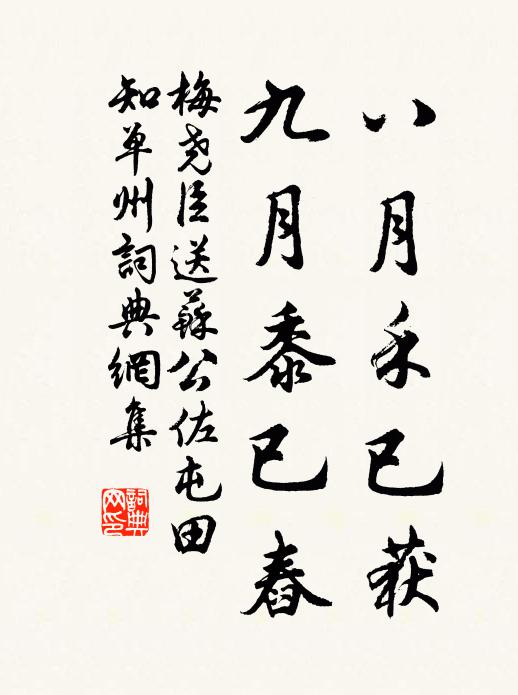 八月禾已获
九月黍已舂
梅尧臣送蘇公佐屯田
知单州詞典網集
詞典
网印